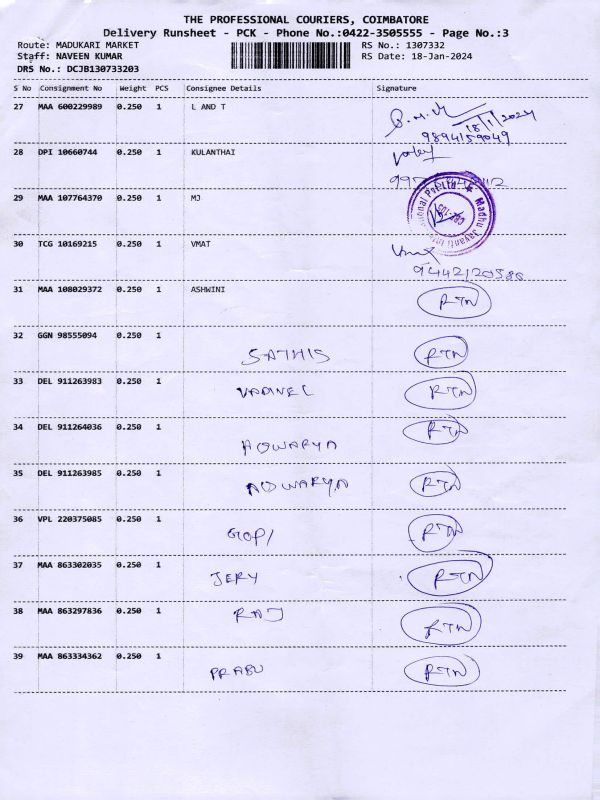 THE PROFESSIONAL COURIERS, COIMBATORE
Delivery Runsheet - PCK - Phone No.:0422-3505555 - Page No.:3
Route: MADUKARI MARKET RS No.: 1307332
Staff: NAVEEN KUMAR RS Date: 18-Jan-2024
DRS No.: DCJB130733203
S No Consignment No Weight PCS Consignee Details Signature
27 MAA 600229989 0.250 1 L AND T
18/1/2024
9894159049
28 DPI 10660744 0.250 1 KULANTHAI
29 MAA 107764370 0.250 1 MJ
Madhu Jayanti
30 TCG 10169215 0.250 1 VMAT
9442120586
31 MAA 108029372 0.250 1 ASHWINI RTN
32 GGN 98555094 0.250 1 SATHIS RTN
33 DEL 911263983 0.250 1 RTN
34 DEL 911264036 0.250 1 RTN
35 DEL 911263985 0.250 1 RTN
36 VPL 220375085 0.250 1 GOPI RTN
37 MAA 863302035 0.250 1 JERY RTN
38 MAA 863297836 0.250 1 RAJ RTN
39 MAA 863334362 0.250 1 PRABU RTN